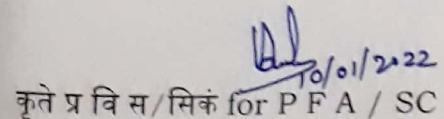 10/01/2022
कृते प्र वि स/सिकं for P F A / SC